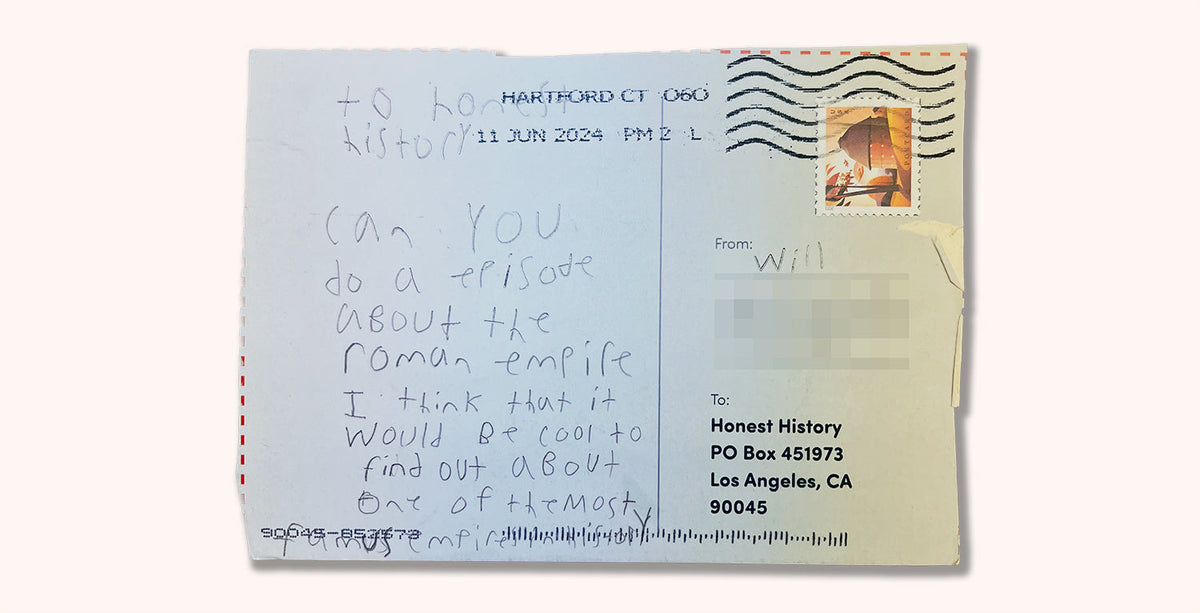 to honest
history
HARTFORD CT 060
11 JUN 2024 PM 2 L
can YOU
do a episode
aBOUt the
roman empire
I think that it
would Be cool to
find out aBOUt
One of the Most
famus empires in history
90045-852573
USA
PORTLAND
From:
Will
To:
Honest History
PO Box 451973
Los Angeles, CA
90045